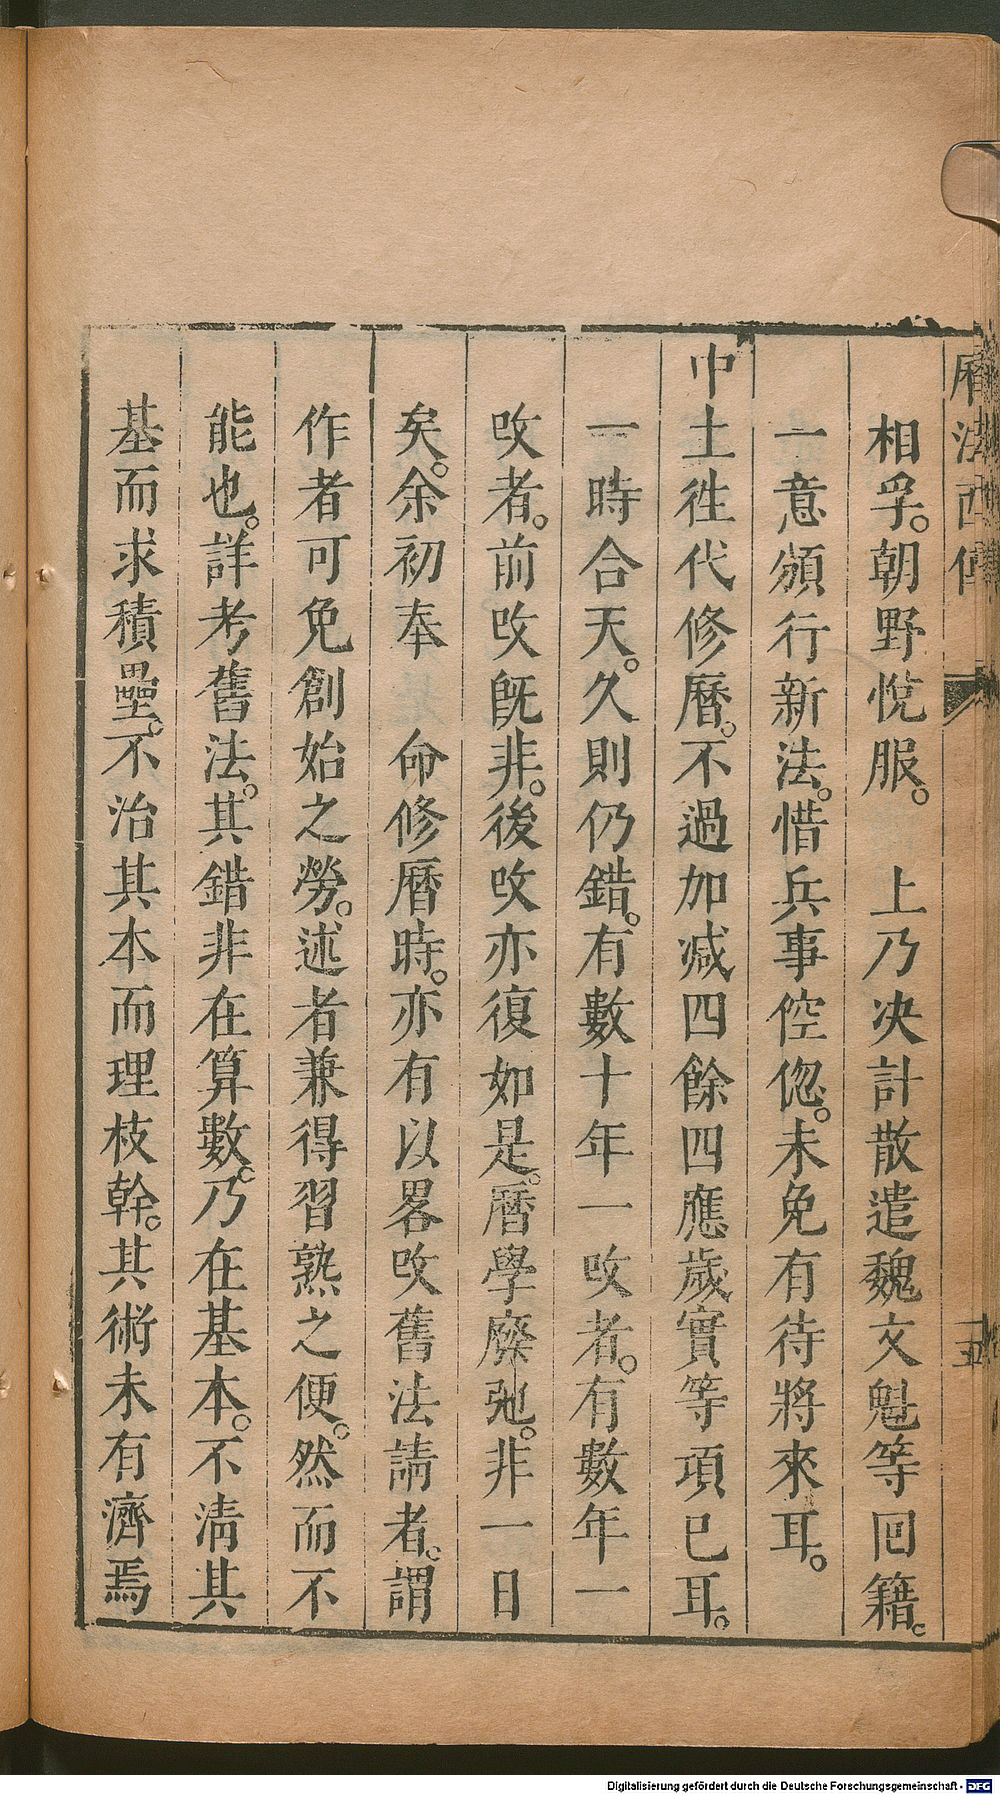 曆法西傳
五
相孚。朝野悅服。 上乃决計散遣魏文魁等回籍。
一意頒行新法。惜兵事倥偬。未免有待將來耳。
中土徃代修曆。不過加减四餘四應歲實等項已耳。
一時合天。久則仍錯。有數十年一攺者。有數年一
攺者。前攺旣非。後攺亦復如是。曆學廢弛。非一日
矣。余初奉 命修曆時。亦有以畧攺舊法請者。謂
作者可免創始之勞。述者兼得習熟之便。然而不
能也。詳考舊法。其錯非在算數。乃在基本。不清其
基而求積壘。不治其本而理枝幹。其術未有濟焉
Digitalisierung gefördert durch die Deutsche Forschungsgemeinschaft - DFG